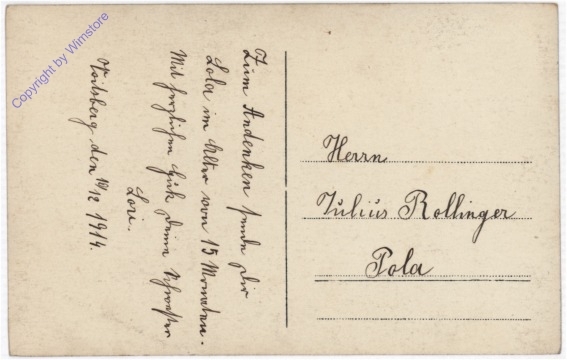 Zum Andenken sende Dir
Lola im Alter von 15 Monaten.
Mit herzlichem Gruß Deine Schwester
Lori.
Voitsberg den 10/12 1914.
Herrn
Julius Rollinger
Pola
Copyright by Wimstore